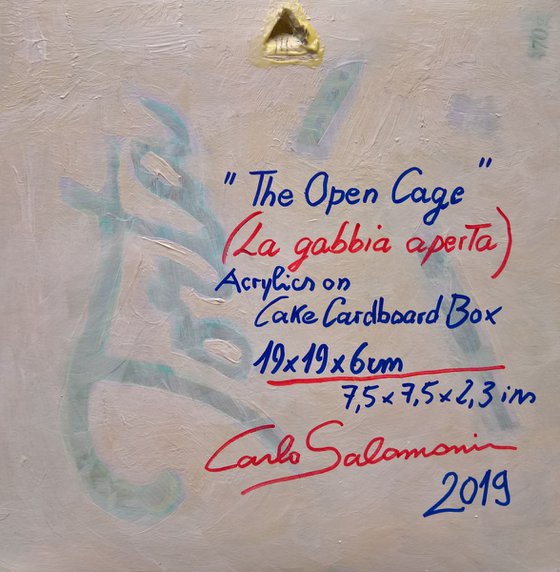 "The Open Cage"
(La gabbia aperta)
Acrylics on
Cake Cardboard Box
19x19x6cm
7,5x7,5x2,3 ins
Carlo Salomoni
2019
Torta